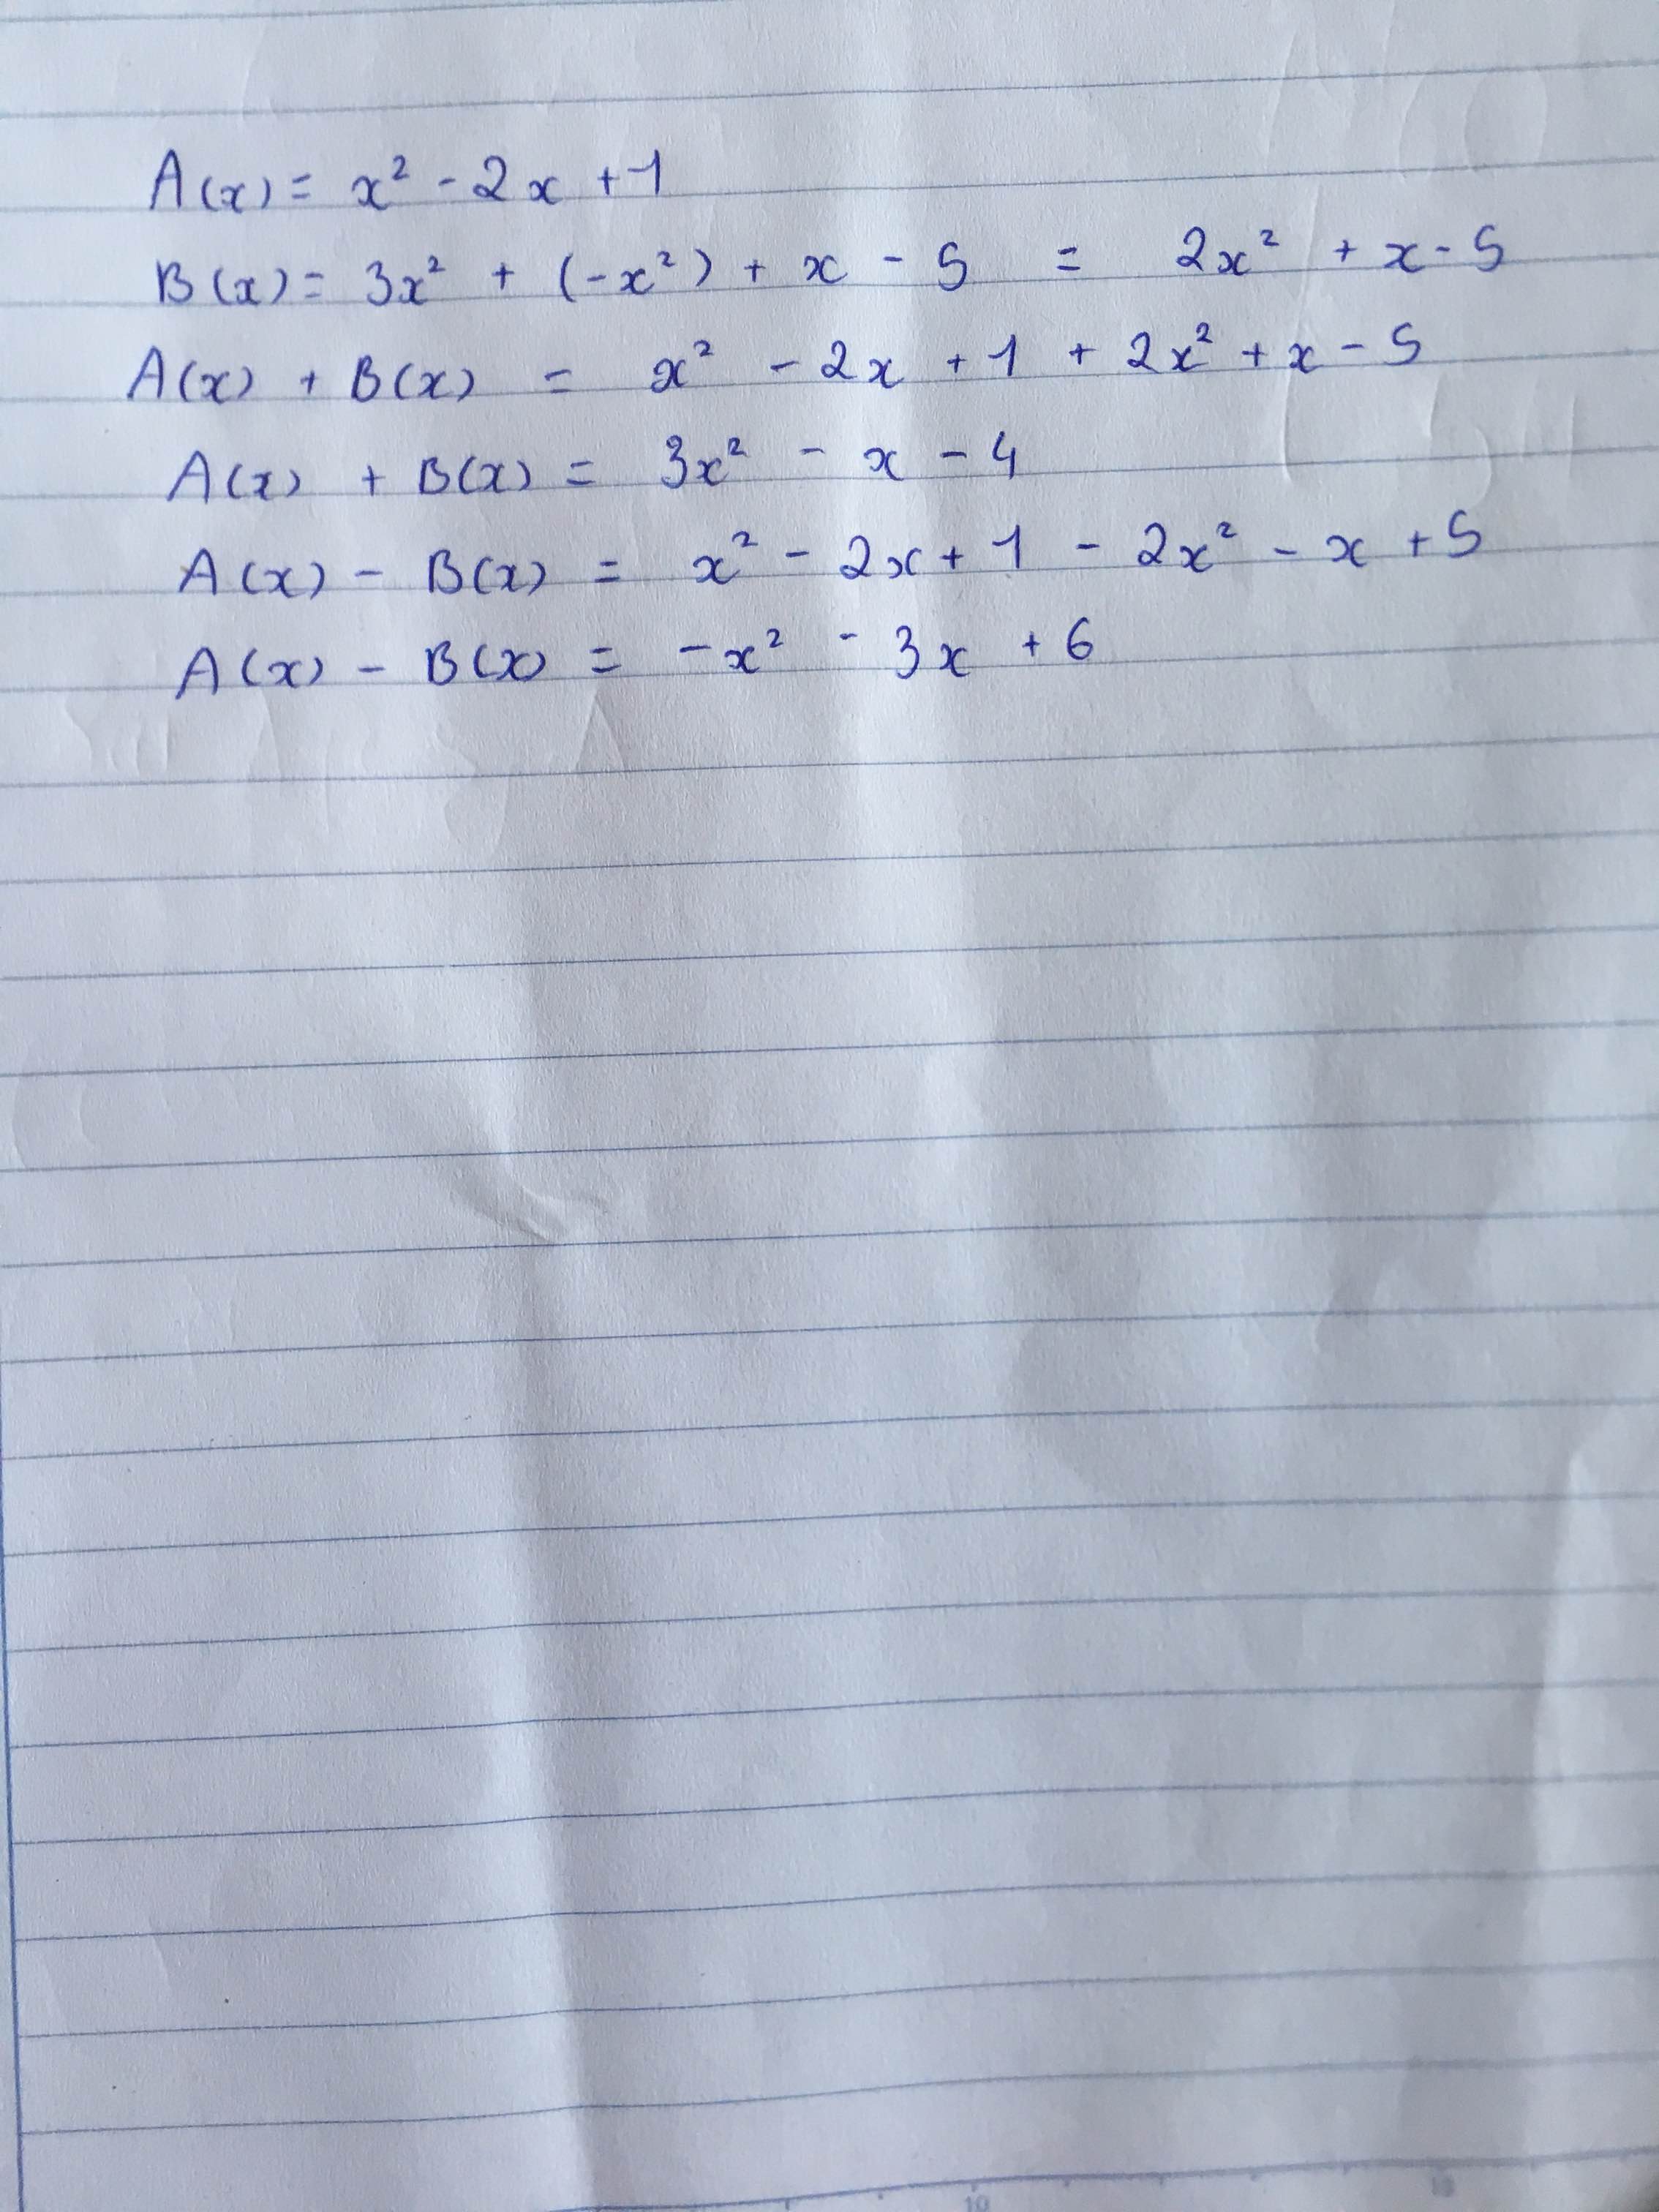 A(x) = x² - 2x + 1
B(x) = 3x² + (-x²) + x - 5 = 2x² + x - 5
A(x) + B(x) = x² - 2x + 1 + 2x² + x - 5
A(x) + B(x) = 3x² - x - 4
A(x) - B(x) = x² - 2x + 1 - 2x² - x + 5
A(x) - B(x) = -x² - 3x + 6
10